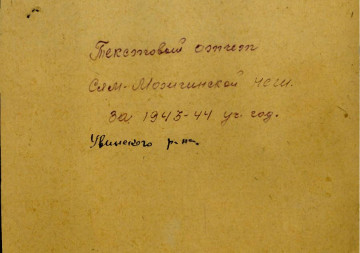 Текстовой отчет
Сям-Можгинской НСШ.
За 1943-44 уч год.
Увинского р-на.